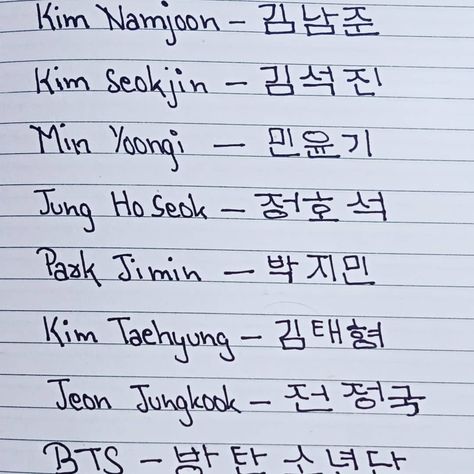 Kim Namjoon - 김남준
Kim Seokjin - 김석진
Min Yoongi - 민윤기
Jung Ho Seok - 정호석
Park Jimin - 박지민
Kim Taehyung - 김태형
Jeon Jungkook - 전정국
BTS - 방탄소년단